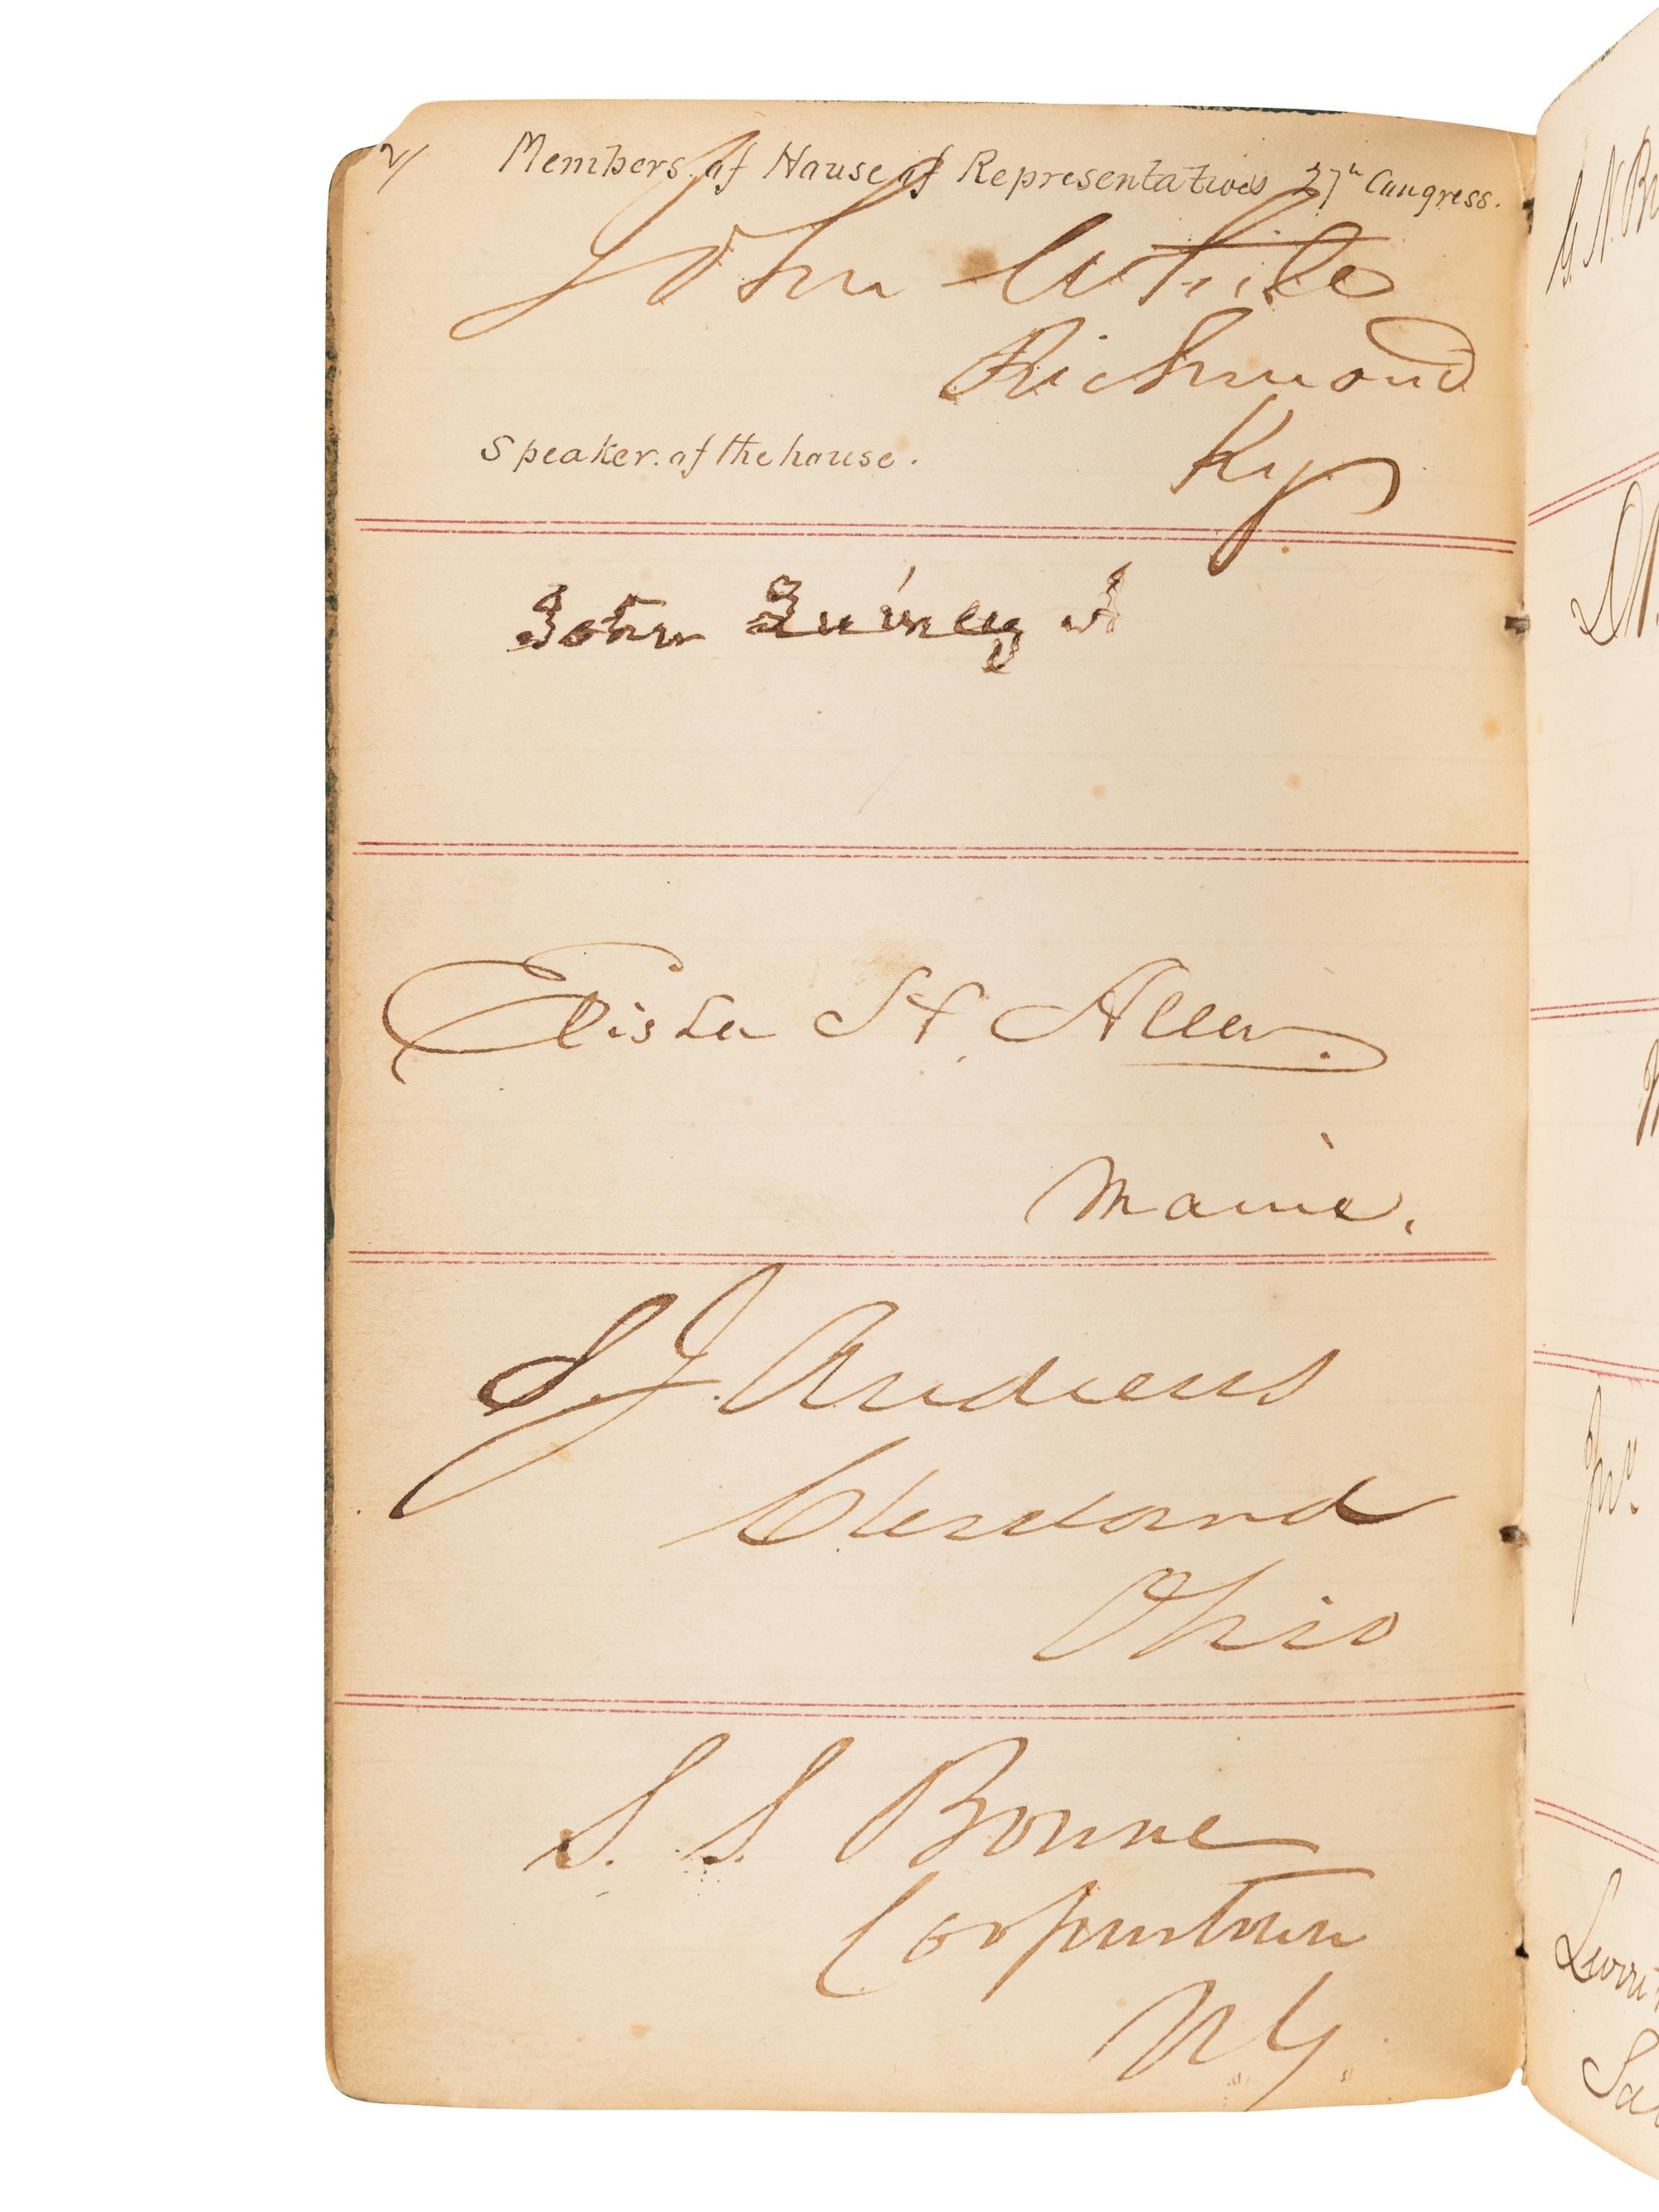 2/ Members of House of Representatives 27th Congress.
John White
Richmond
Speaker of the house. Ky
John Quincy A
Elisha H. Allen.
Maine.
S. J. Andrews
Cleveland
Ohio
S. S. Bowne
Cooperstown
N. Y.